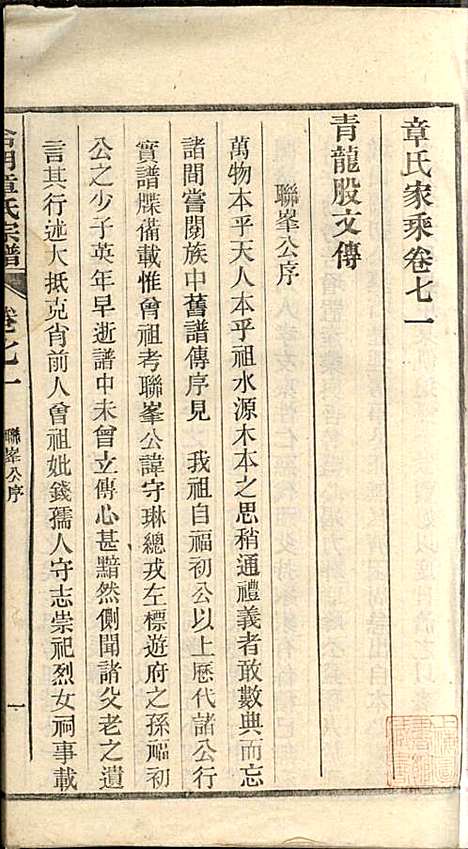 章氏家乘卷七一
青龍股文傳
聯峯公序
萬物本乎天人本乎祖水源木本之思稍通禮義者敢數典而忘
諸間嘗閱族中舊譜傳序見 我祖自福初公以上歷代諸公行
實譜牒備載惟曾祖考聯峯公諱守琳總戎左標遊府之孫福初
公之少子英年早逝譜中未曾立傳心甚黯然側聞諸父老之遺
言其行述大抵克肖前人曾祖妣錢孺人守志崇祀烈女祠事載
章氏宗譜
卷七一
聯峯公序
一